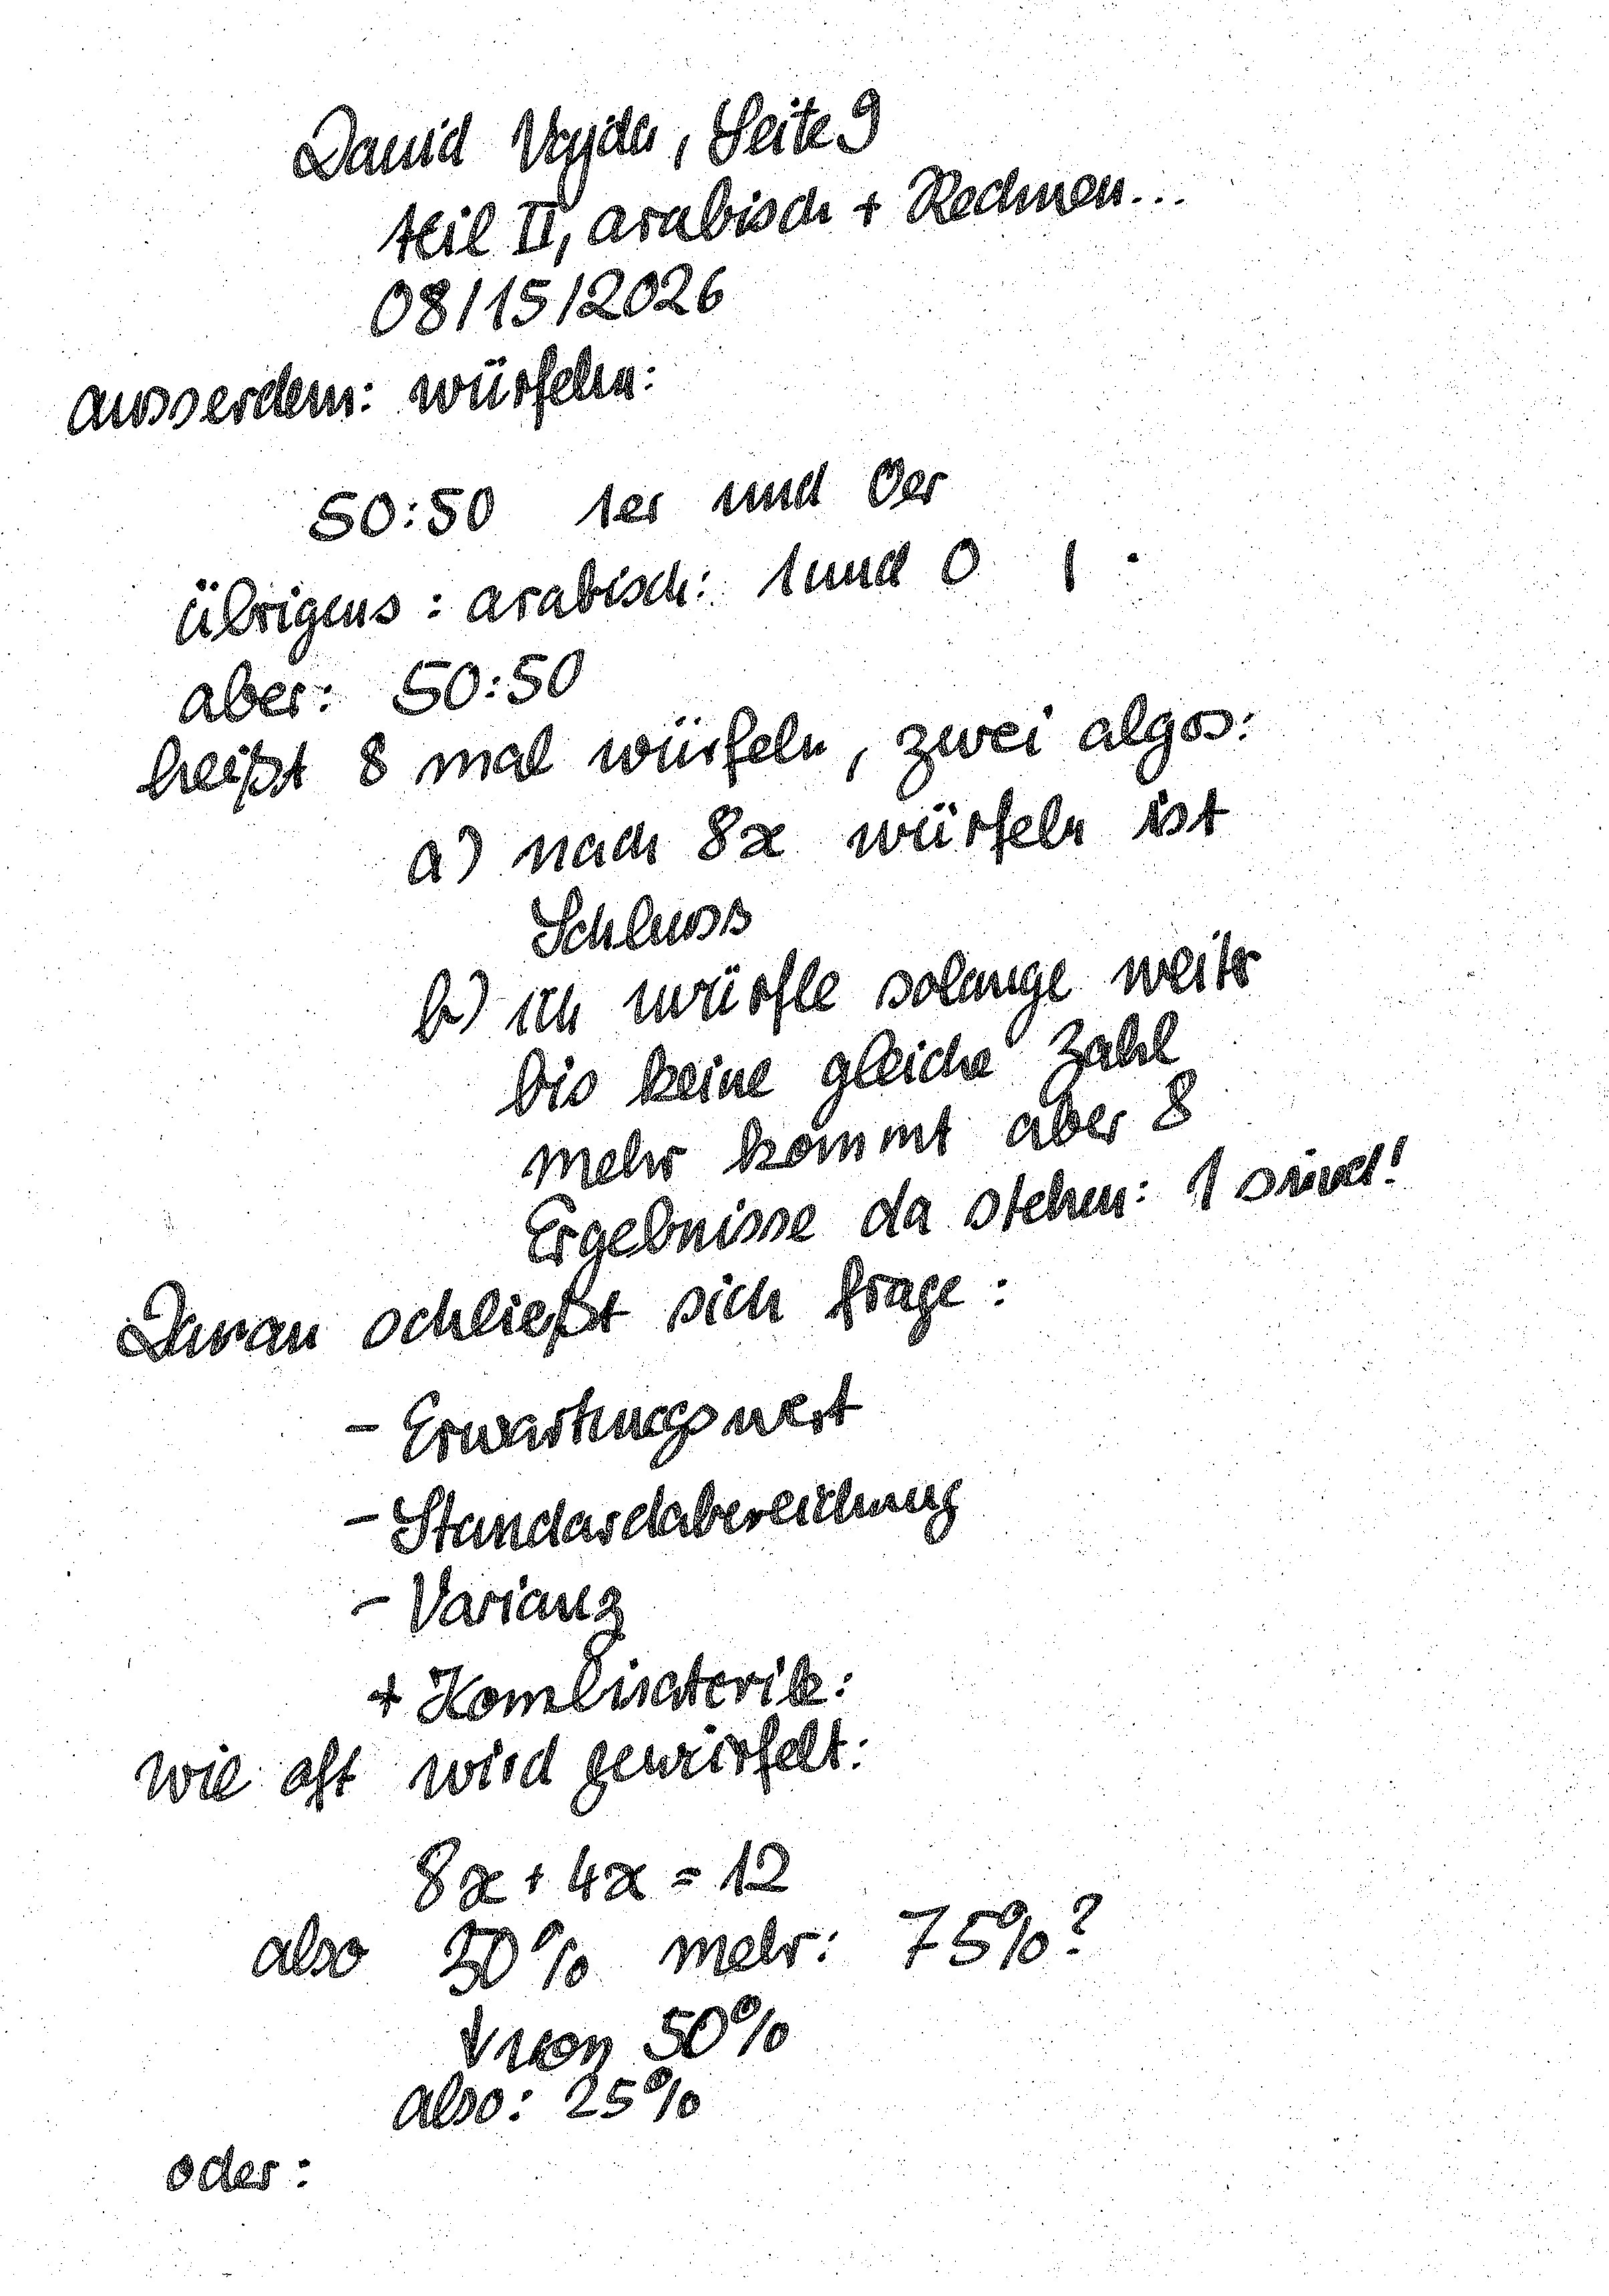 David Vajda, Seite 9
teil II, arabisch + Rechnen...
08/15/2026
ausserdem: würfeln:
50:50 1er und 0er
übrigens: arabisch: 1 und 0 ١ ٠
aber: 50:50
heißt 8 mal würfeln, zwei algos:
a) nach 8x würfeln ist
Schluss
b) ich würfle solange weiter
bis keine gleiche Zahl
mehr kommt aber 8
Ergebnisse da stehen: 1 sind!
Daran schließt sich frage:
- Erwartungswert
- Standardabweichung
- Varianz
+ Kombinatorik:
wie oft wird gewürfelt:
8x + 4x = 12
also 50% mehr: 75%?
von 50%
also: 25%
oder: